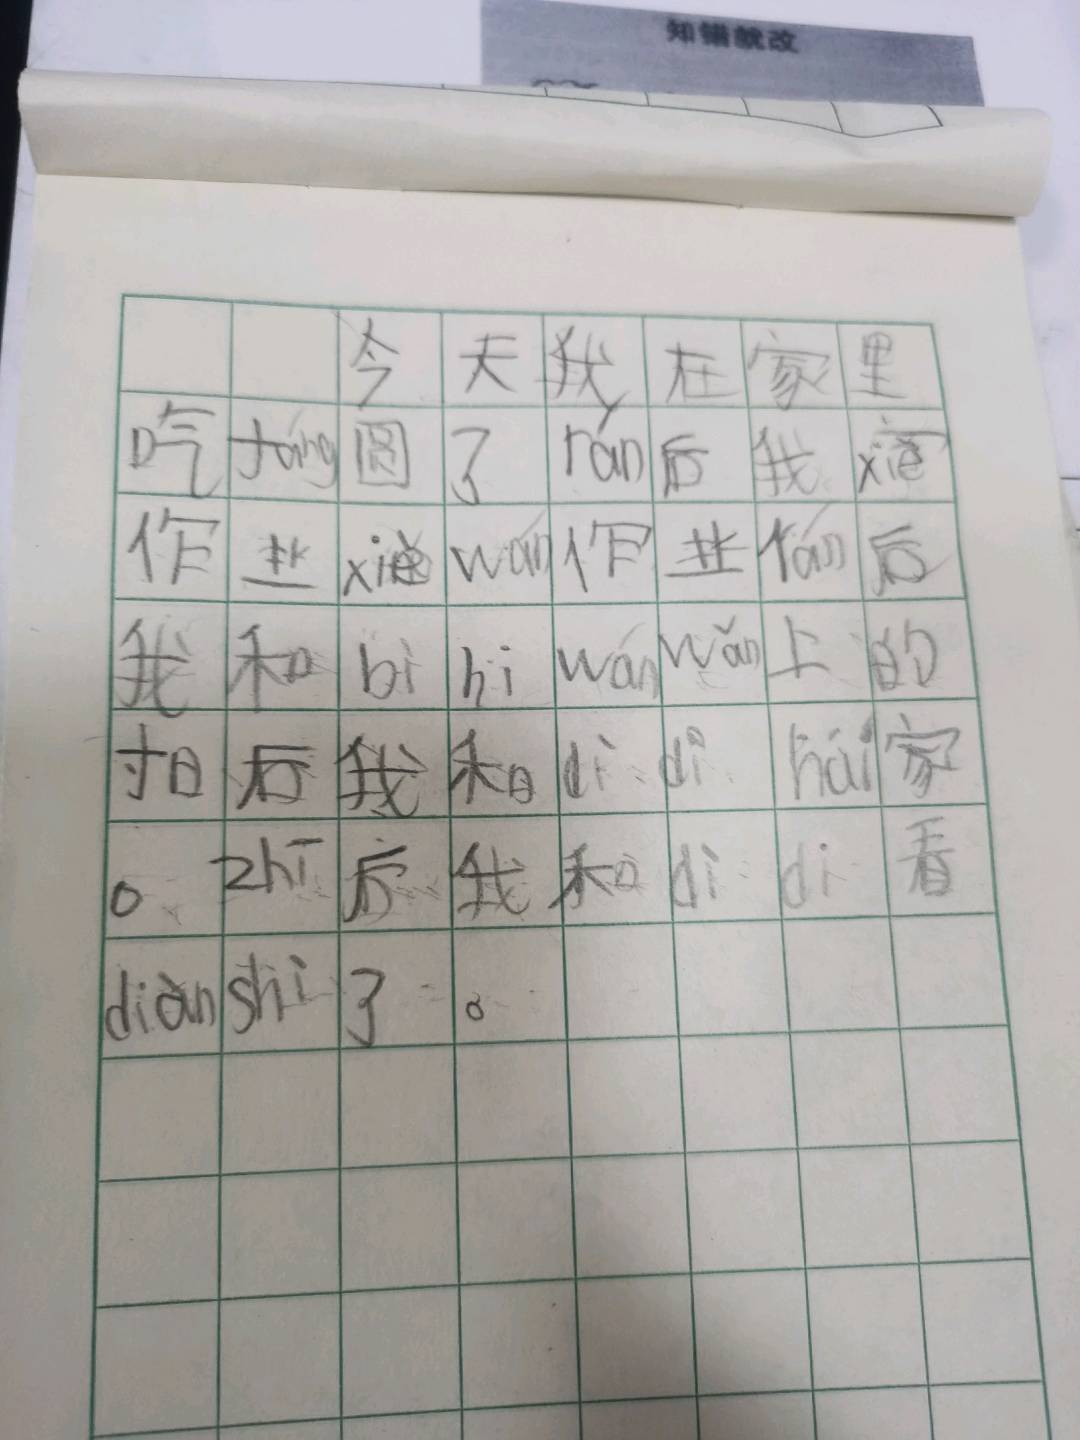 知错就改
今天我在家里
吃táng圆了rán后我xiě
作业xiěwán作业rán后
我和bìhiwánwǎn上的
后我和dìdihái家
。zhī后我和dìdi看
diànshì了。